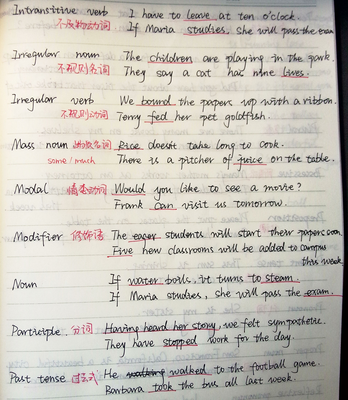 Intransitive verb I have to leave at ten o'clock.
不及物动词 If Maria studies, she will pass the exam
Irregular noun The children are playing in the park.
不规则名词 They say a cat has nine lives.
Irregular verb We bound the papers up with a ribbon.
不规则动词 Terry fed her pet goldfish.
Mass noun 物质名词 Rice doesn't take long to cook.
some/much There is a pitcher of juice on the table.
Modal 情态动词 Would you like to see a movie?
Frank can visit us tomorrow.
Modifier 修饰语 The eager students will start their papers soon.
Five new classrooms will be added to campus
this week.
Noun If water boils, it turns to steam.
If Maria studies, she will pass the exam.
Participle 分词 Having heard her story, we felt sympathetic.
They have stopped work for the day.
Past tense 过去式 He walked to the football game.
Barbara took the bus all last week.